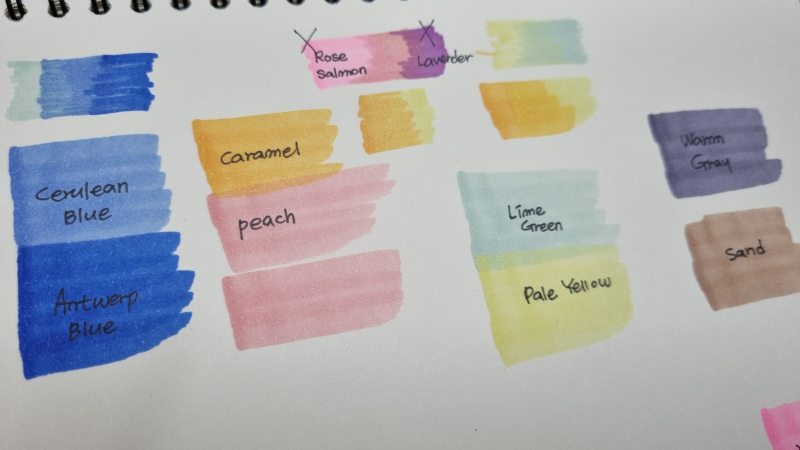 Rose
Salmon
Lavender
Caramel
Cerulean
Blue
peach
Antwerp
Blue
Lime
Green
Pale Yellow
Warm
Gray
Sand